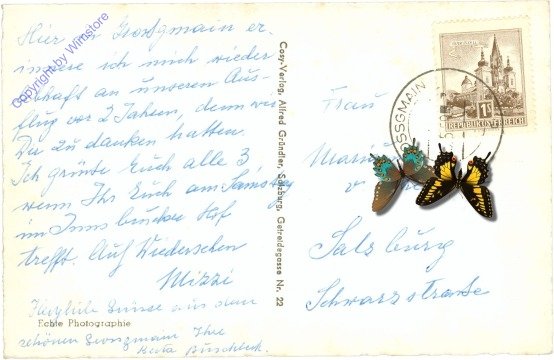 Copyright by Wimstore
Hier in Grossgmain er
innere ich mich wieder
lebhaft an unseren Aus-
flug vor 2 Jahren, denn wir
Du zu danken hatten.
Ich grüsse Euch alle 3
wenn Ihr Euch am Samstag
im Innsbrucker Hof
trefft. Auf Wiedersehen
Mizzi
Herzliche Grüsse aus dem
Echte Photographie
schönen Grossgmain Ihre
Cosy-Verlag, Alfred Gründler, Salzburg, Getreidegasse Nr. 22
REPUBLIK ÖSTERREICH
1S
SSGMAIN
Frau
Salzburg
Schwarzstrasse